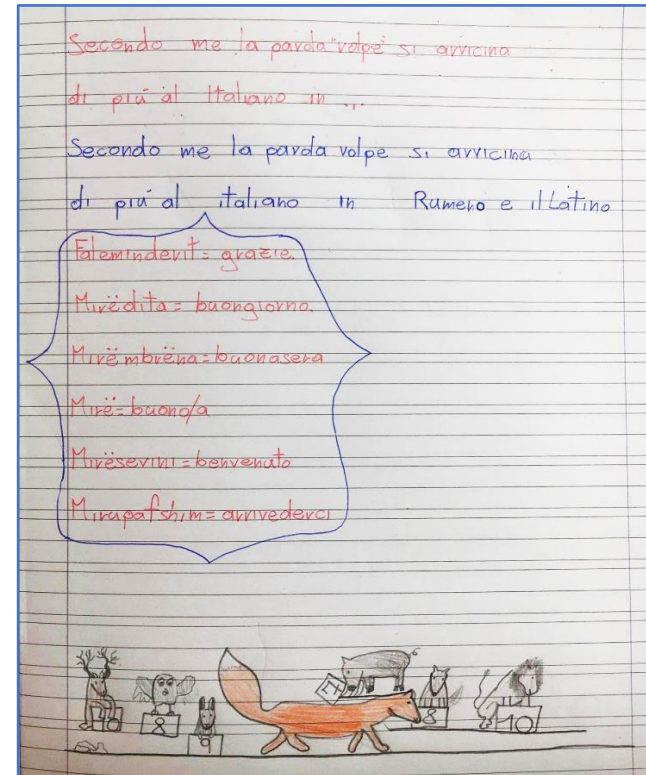 Secondo me la parola "volpe" si avvicina
di piú al Italiano in ...
Secondo me la parola volpe si avvicina
di piú al italiano in Rumeno e il Latino
Falemindevit = grazie.
Mirëdita = buongiorno.
Mirëmbrëna = buonasera
Mirë = buono/a
Mirësevini = benvenuto
Mirupafshim = arrivederci
8
9
8
10